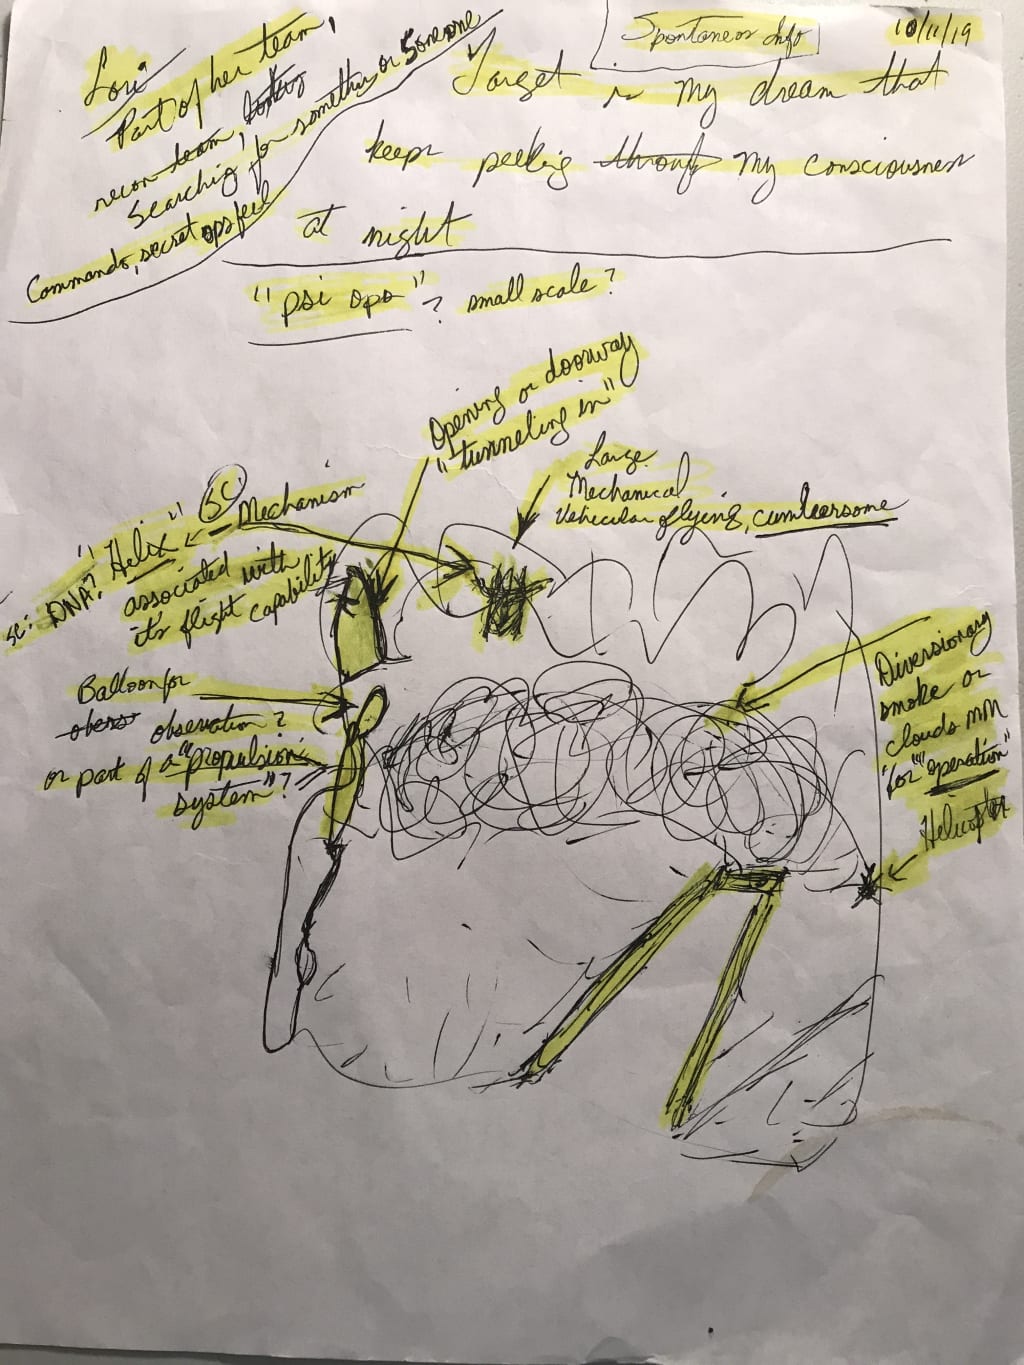 Lori
Part of her team,
recon team, looking
Searching for something or Someone
Commando, secret ops feel
Spontaneos Info
10/11/19
Target is my dream that
keeps peeking through my consciousness
at night
"psi ops"? small scale?
Opening or doorway
"tunneling in"
Large
Mechanical
Vehicular flying, cumbersome
"Helix" SC Mechanism
SC: DNA?
associated with
it's flight capability
Balloon for
obers observation?
or part of a "propulsion
system"?
Diversionary
smoke or
clouds mm
for "operation"
Helicopter